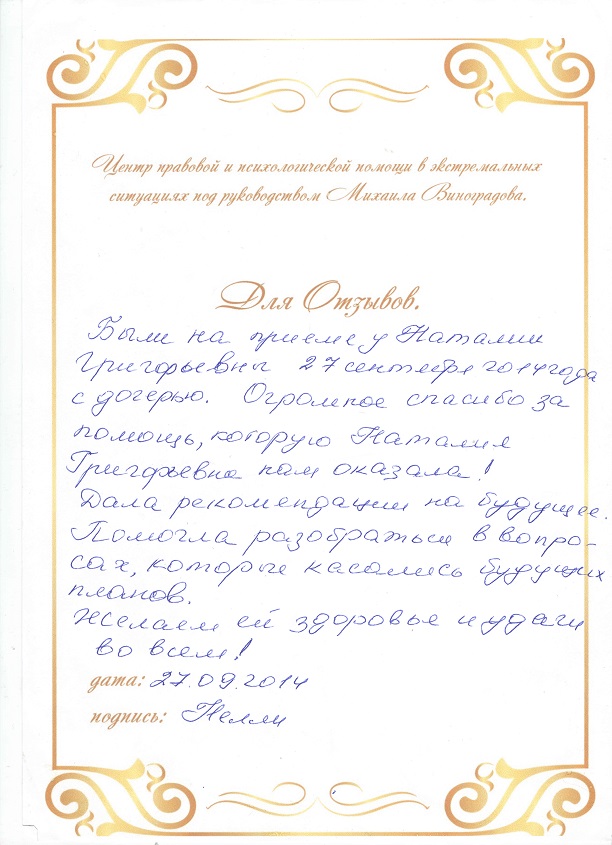 Центр правовой и психологической помощи в экстремальных
ситуациях под руководством Михаила Виноградова.
Для Отзывов.
Были на приеме у Наталии
Григорьевны 27 сентября 2014 года
с дочерью. Огромное спасибо за
помощь, которую Наталия
Григорьевна нам оказала!
Дала рекомендации на будущее.
Помогла разобраться в вопро-
сах, которые касались будущих
планов.
Желаем ей здоровье и удачи
во всем!
дата: 27.09.2014
подпись: Нелли